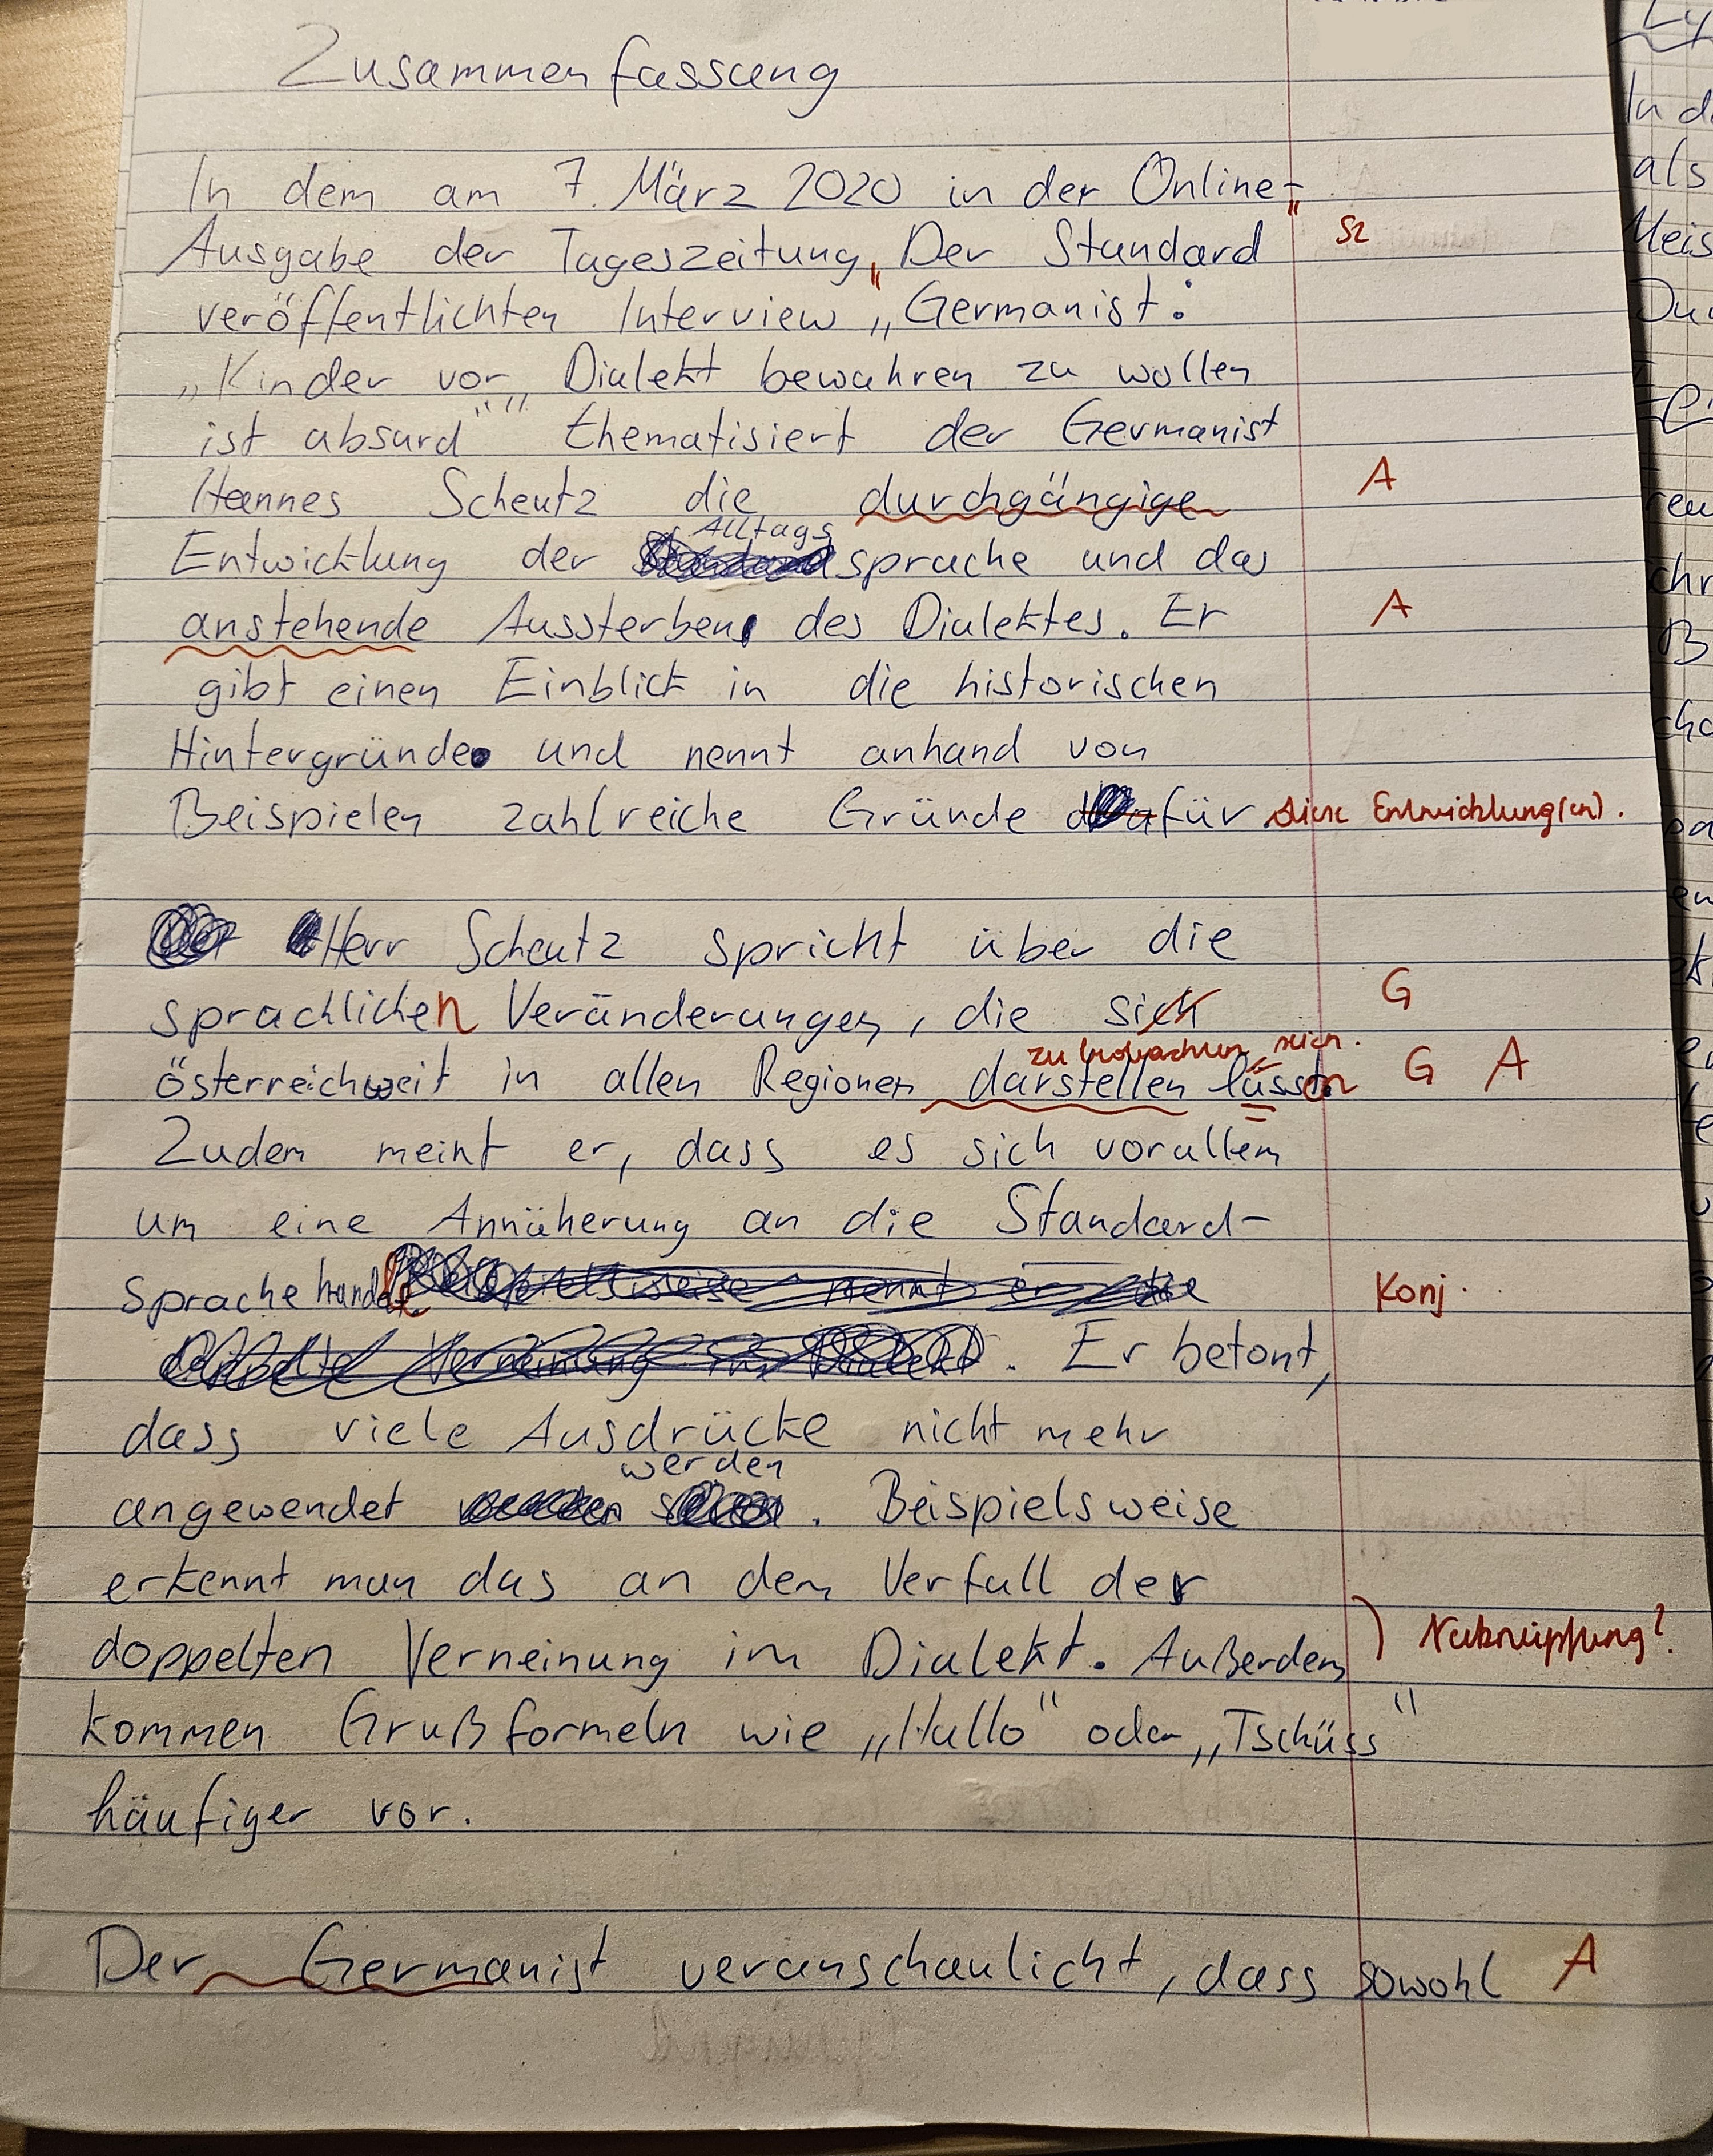 Zusammenfassung
In dem am 7. März 2020 in der Online-
Ausgabe der Tageszeitung "Der Standard" Sz
veröffentlichten Interview „Germanist:
„Kinder vor Dialekt bewahren zu wollen
ist absurd"" thematisiert der Germanist
Hannes Scheutz die durchgängige A
Entwicklung der Alltagssprache und das
anstehende Aussterben des Dialektes. Er A
gibt einen Einblick in die historischen
Hintergründe und nennt anhand von
Beispielen zahlreiche Gründe dafür diese Entwicklung(en).
Herr Scheutz spricht über die
sprachlichen Veränderungen, die sich G
zu beobachten sich.
österreichweit in allen Regionen darstellen lassen G A
Zudem meint er, dass es sich vorallem
um eine Annäherung an die Standard-
sprache handle Konj.
. Er betont,
dass viele Ausdrücke nicht mehr
angewendet werden. Beispielsweise
erkennt man das an dem Verfall der
doppelten Verneinung im Dialekt. Außerdem
kommen Grußformeln wie „Hallo" oder „Tschüss"
häufiger vor.
Der Germanist veranschaulicht, dass sowohl A